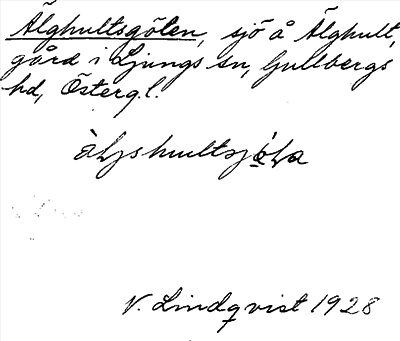 Älghultsgölen, sjö å Älghult,
gård i Ljungs sn, Gullbergs
hd, Östergl.
àljshultsjö̀la
N. Lindqvist 1928